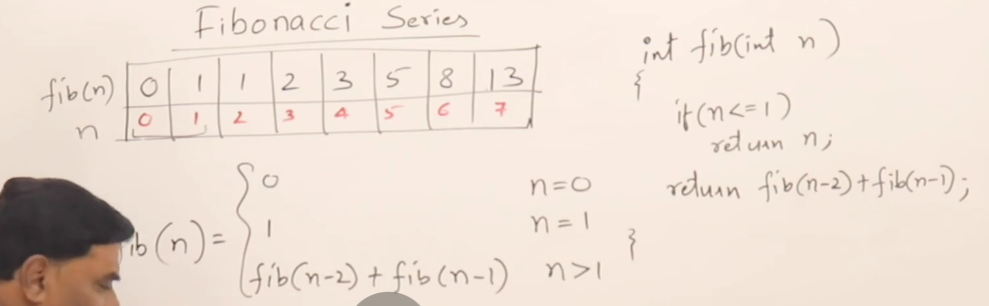 Fibonacci Series
fib(n) 0 1 1 2 3 5 8 13
n 0 1 2 3 4 5 6 7
ib(n) = { 0 n=0
1 n=1
fib(n-2) + fib(n-1) n>1
int fib(int n)
{
if(n<=1)
return n;
return fib(n-2)+fib(n-1);
}